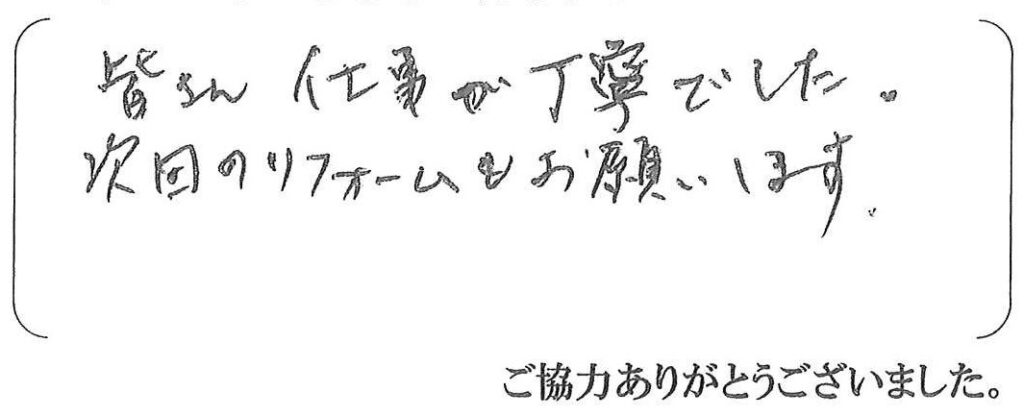 皆さん仕事が丁寧でした。
次回のリフォームもお願いします。
ご協力ありがとうございました。